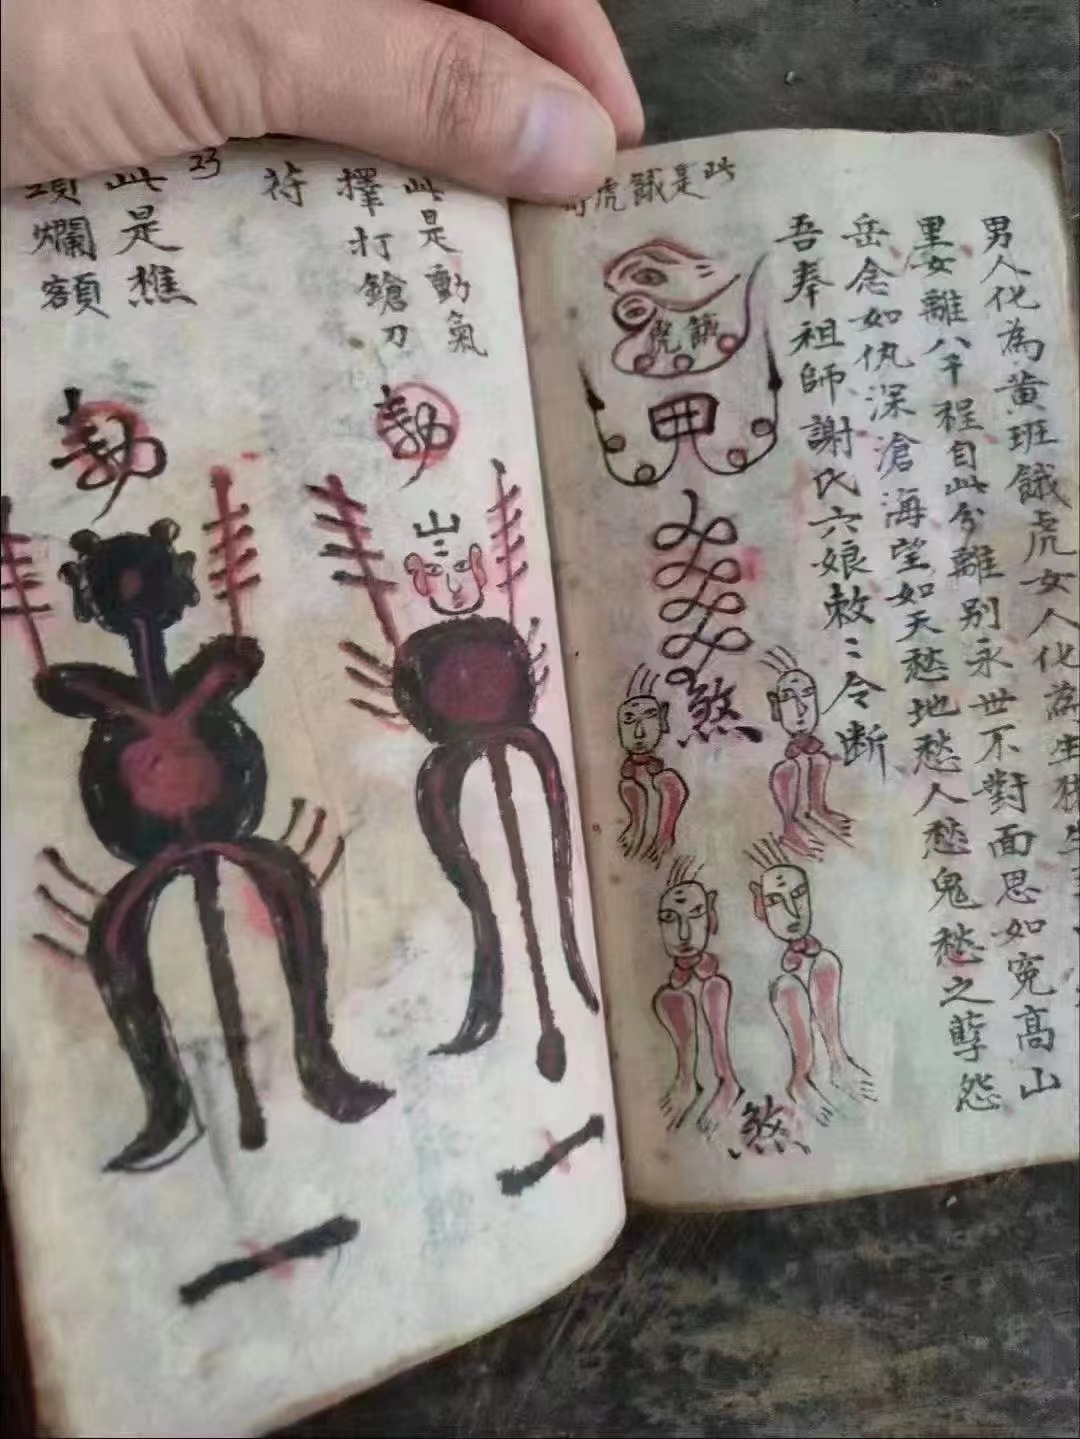 此是餓虎
男人化為黃班餓虎女人化為生
里女離八千程自此分離別永世不對面思如寃高山
岳念如仇深滄海望如天愁地愁人愁鬼愁之孽怨
吾奉祖師謝氏六娘敕〻令断
餓虎
煞
煞
此是動氣
擇打鎗刀
符
23
此是樵
爛額
勅
勅